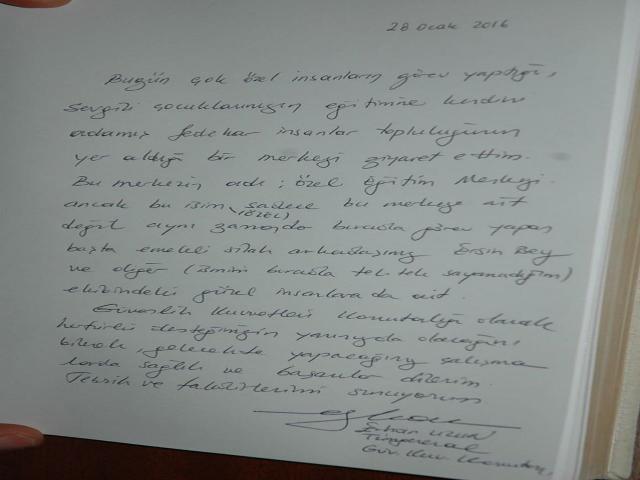 28 Ocak 2016
Bugün çok özel insanların görev yaptığı,
Sevgili çocuklarımızın eğitimine kendini
adamış fedekar insanlar topluluğunun
yer aldığı bir merkezi ziyaret ettim.
Bu merkezin adı; özel Eğitim Merkezi.
ancak bu isim (özel) sadece bu merkeze ait
değil aynı zamanda burada görev yapan
başta emekli silah arkadaşımız Ersin Bey
ve diğer (ismini burada tek tek sayamadığım)
ekibindeki güzel insanlara da ait.
Güvenlik Kuvvetleri Komutanlığı olarak
her türlü desteğimizin yanınızda olacağını
bilerek, gelecekte yapacağınız çalışma
larda sağlık ve başarılar dilerim.
Tebrik ve takdirlerimi sunuyorum
Erhan UZUN
Tümgeneral
Güv. Kuv. Komutanı